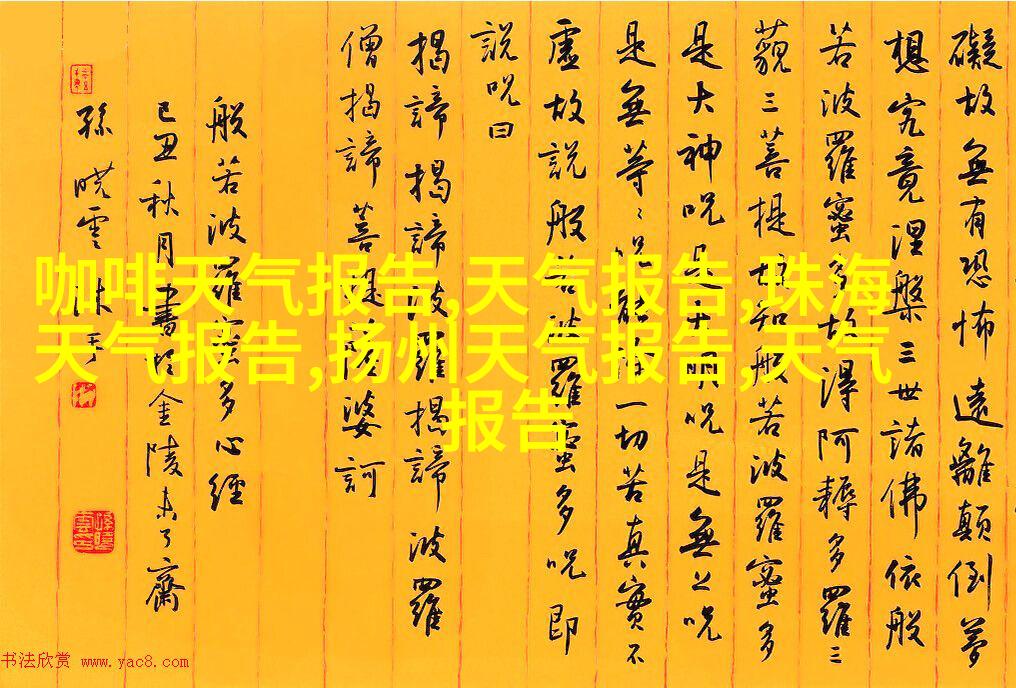 礙故無有恐怖遠離顛倒夢
想究竟涅槃三世諸佛依般
若波羅蜜多故得阿耨多羅三
藐三菩提故知般若波羅蜜多
是大神咒是大明咒是無上咒
是無等〻咒能除一切苦真實不
虛故說般若波羅蜜多咒即
說咒曰
揭諦揭諦波羅揭諦波羅
僧揭諦菩提薩婆訶
般若波羅蜜多心經
己丑秋月書於金陵未了齋
孫曉雲沐手
咖啡天气报告,天气报告,珠海
天气报告,扬州天气报告,天气
报告
书法欣赏 www.yac8.com